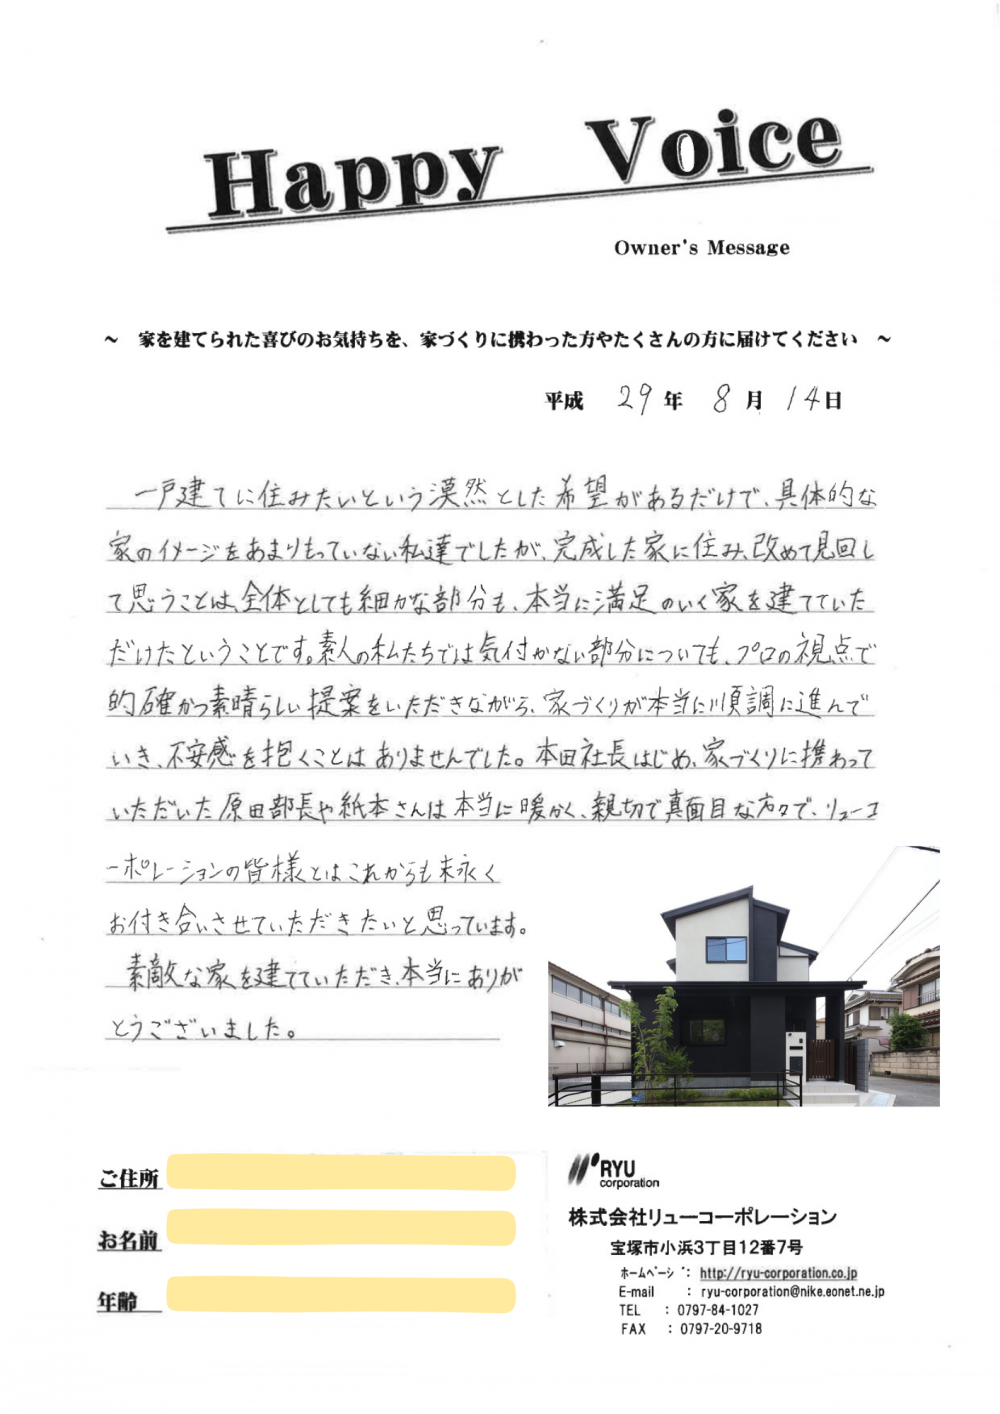 Happy Voice
Owner's Message
～ 家を建てられた喜びのお気持ちを、家づくりに携わった方やたくさんの方に届けてください ～
平成 29年 8月 14日
一戸建てに住みたいという漠然とした希望があるだけで、具体的な
家のイメージをあまりもっていない私達でしたが、完成した家に住み、改めて見回し
て思うことは、全体としても細かな部分も、本当に満足のいく家を建てていた
だけたということです。素人の私たちでは気付かない部分についても、プロの視点で
的確かつ素晴らしい提案をいただきながら、家づくりが本当に順調に進んで
いき、不安感を抱くことはありませんでした。本田社長はじめ、家づくりに携わって
いただいた原田部長や紙本さんは本当に暖かく、親切で真面目な方々で、リューコ
ーポレーションの皆様とはこれからも末永く
お付き合いさせていただきたいと思っています。
素敵な家を建てていただき、本当にありが
とうございました。
ご住所
お名前
年齢
RYU
corporation
株式会社リューコーポレーション
宝塚市小浜3丁目12番7号
ﾎｰﾑﾍﾟｰｼﾞ： http://ryu-corporation.co.jp
E-mail ： ryu-corporation@nike.eonet.ne.jp
TEL ： 0797-84-1027
FAX ： 0797-20-9718